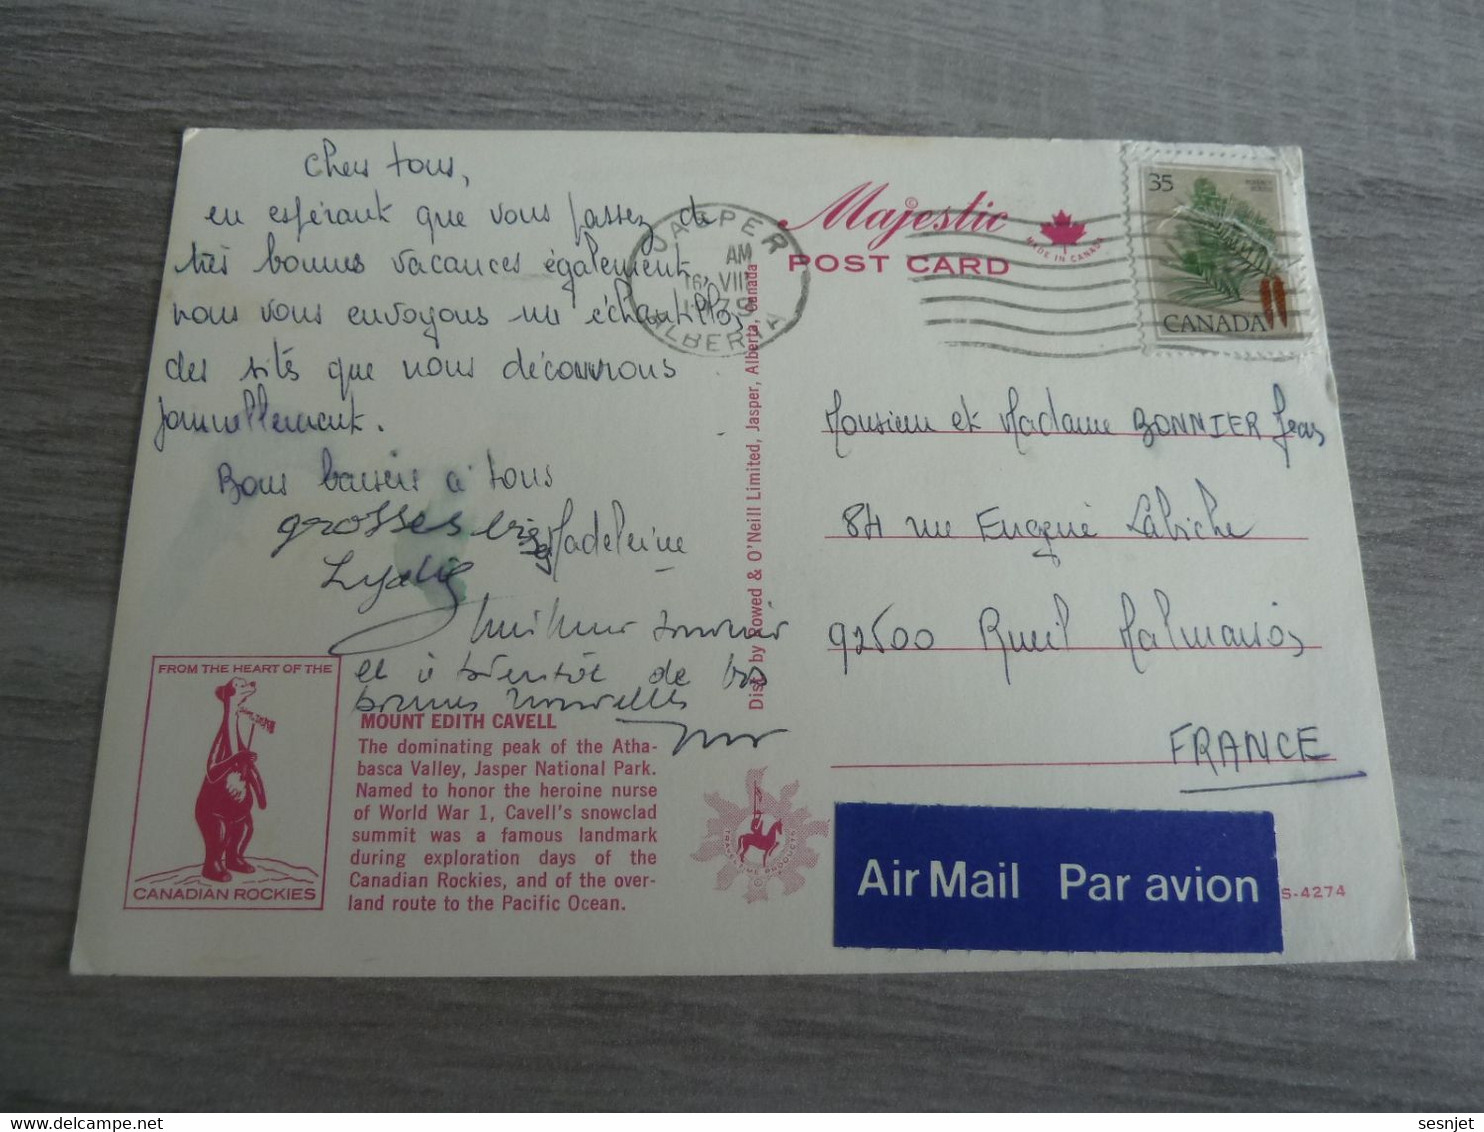 Chers tous,
en espérant que vous passez de
très bonnes vacances également,
nous vous envoyons un échantillon
des sites que nous découvrons
journellement.
Bons baisers à tous
grosses bises Madeleine
Lydie
Meilleur souvenir
et à bientôt de vos
bonnes nouvelles
FROM THE HEART OF THE
CANADIAN ROCKIES
MOUNT EDITH CAVELL
The dominating peak of the Atha-
basca Valley, Jasper National Park.
Named to honor the heroine nurse
of World War 1, Cavell's snowclad
summit was a famous landmark
during exploration days of the
Canadian Rockies, and of the over-
land route to the Pacific Ocean.
Dist. by Rowed & O'Neill Limited, Jasper, Alberta, Canada
JASPER
AM
16 VIII
ALBERTA
Majestic
POST CARD
MADE IN CANADA
35
CANADA
Monsieur et Madame BONNIER Jean
84 rue Eugène Labiche
92500 Rueil Malmaison
FRANCE
Air Mail Par avion
S-4274
sesnjet